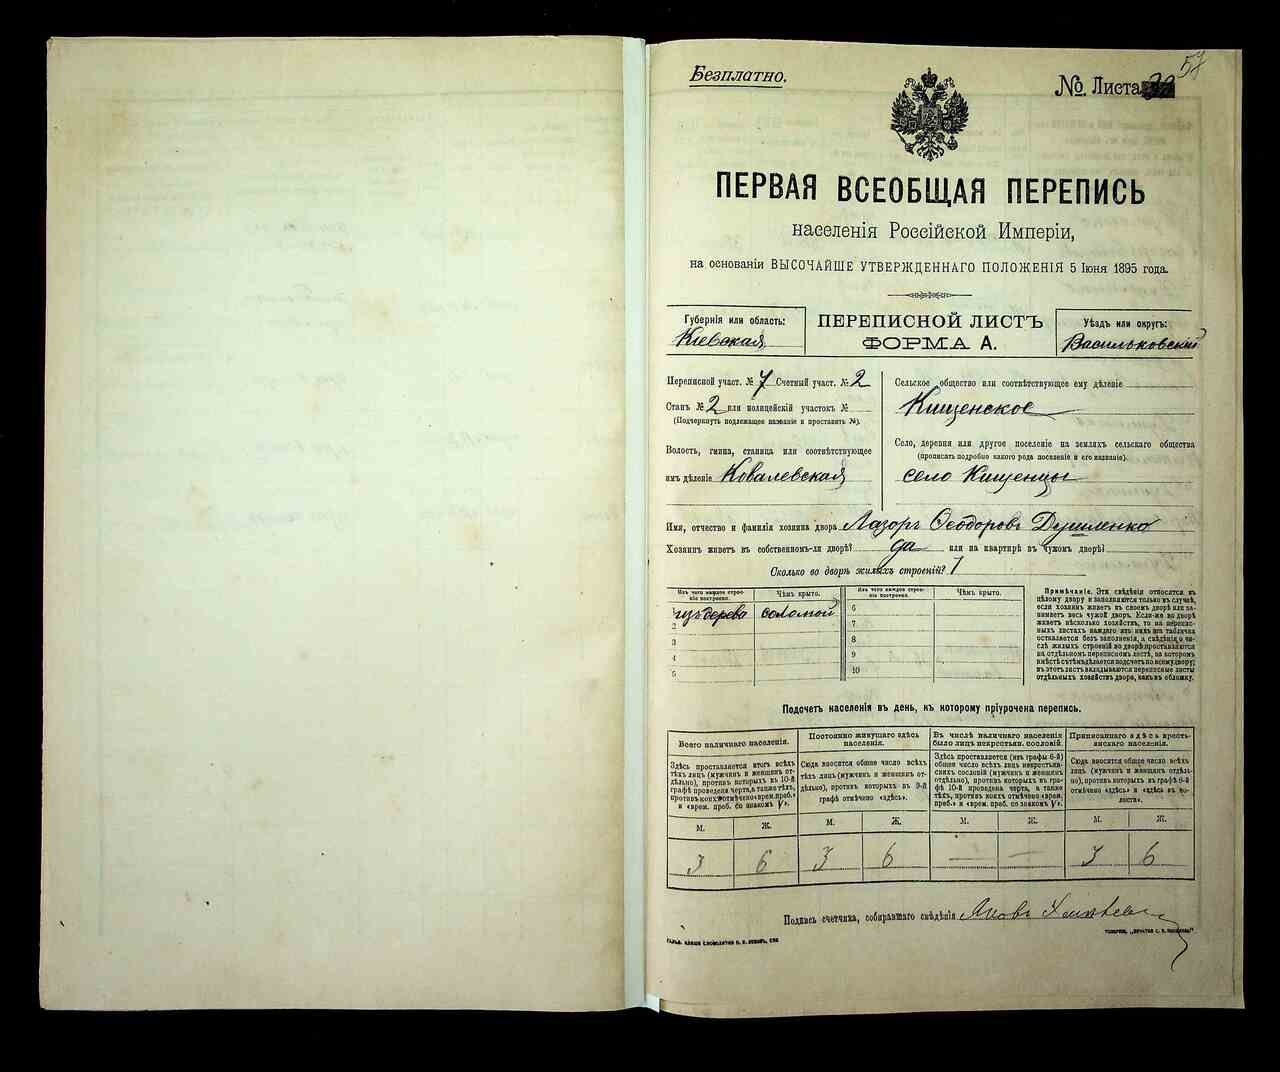 Безплатно.
57
№ Листа
ПЕРВАЯ ВСЕОБЩАЯ ПЕРЕПИСЬ
населенія Россійской Имперіи,
на основаніи ВЫСОЧАЙШЕ УТВЕРЖДЕННАГО ПОЛОЖЕНІЯ 5 Іюня 1895 года.
Губернія или область:
Кіевская
ПЕРЕПИСНОЙ ЛИСТЪ
ФОРМА А.
Уѣздъ или округъ:
Васильковскій
Переписной участ. № 7 Счетный участ. № 2
Станъ № 2 или полицейскій участокъ №
(Подчеркнуть подлежащее названіе и проставить №).
Волость, гмина, станица или соотвѣтствующее
имъ дѣленіе Ковалевская
Сельское общество или соотвѣтствующее ему дѣленіе
Кищенское
Село, деревня или другое поселеніе на земляхъ сельскаго общества
(прописать подробно какого рода поселеніе и его названіе).
село Кищенцы
Имя, отчество и фамилія хозяина двора Лазорь Ѳеодоровъ Душленко
Хозяинъ живетъ въ собственномъ-ли дворѣ? да или на квартирѣ въ чужомъ дворѣ?
Сколько во дворѣ жилыхъ строеній? 1
Изъ чего каждое строеніе построено.
Чѣмъ крыто.
Изъ чего каждое строеніе построено.
Чѣмъ крыто.
изъ дерева соломой
2
3
4
5
6
7
8
9
10
Примѣчаніе. Эти свѣдѣнія относятся къ
цѣлому двору и заполняются только въ случаѣ,
если хозяинъ живетъ въ своемъ дворѣ или занимаетъ
весь чужой дворъ. Если-же во дворѣ
живетъ нѣсколько хозяйствъ, то на переписныхъ
листахъ каждаго изъ нихъ эта табличка
оставляется безъ заполненія, а свѣдѣнія о числѣ
жилыхъ строеній во дворѣ проставляются
на отдѣльномъ переписномъ листѣ, на которомъ
вмѣстѣ съ тѣмъ дѣлается подсчетъ по всему двору;
въ этотъ листъ вкладываются переписные листы
отдѣльныхъ хозяйствъ двора, какъ въ обложку.
Подсчетъ населенія въ день, къ которому пріурочена перепись.
Всего наличнаго населенія.
Здѣсь проставляется итогъ всѣхъ
тѣхъ лицъ (мужчинъ и женщинъ отдѣльно),
противъ которыхъ въ 10-й
графѣ проведена черта, а также тѣхъ,
противъ коихъ отмѣчено «врем. преб.»
и «врем. преб. со знакомъ V».
Постоянно живущаго здѣсь
населенія.
Сюда вносится общее число всѣхъ
тѣхъ лицъ (мужчинъ и женщинъ отдѣльно),
противъ которыхъ въ 9-й
графѣ отмѣчено «здѣсь».
Въ числѣ наличнаго населенія
было лицъ некрестьян. сословій.
Здѣсь проставляется (изъ графы 6-й)
общее число всѣхъ лицъ некрестьянскихъ
сословій (мужчинъ и женщинъ
отдѣльно), противъ которыхъ въ графѣ
10-й проведена черта, а также
тѣхъ, противъ коихъ отмѣчено «врем.
преб.» и «врем. преб. со знакомъ V».
Приписаннаго здѣсь крестьянскаго
населенія.
Сюда вносится общее число всѣхъ
лицъ (мужчинъ и женщинъ отдѣльно),
противъ которыхъ въ графѣ 8-й
отмѣчено «здѣсь» и «здѣсь въ волости».
М. Ж. М. Ж. М. Ж. М. Ж.
3 6 3 6 — — 3 6
Подпись счетчика, собиравшаго свѣдѣнія Яковъ